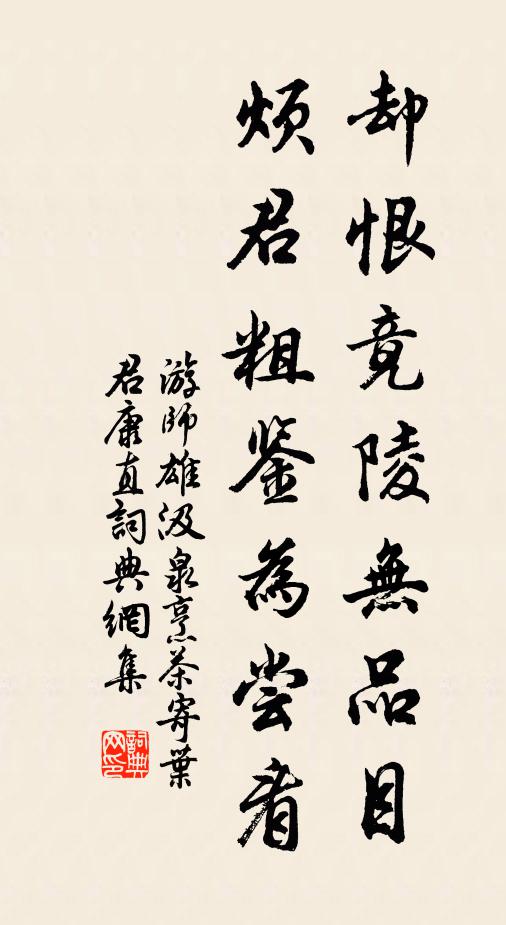 却恨竟陵無品目
煩君粗鉴為尝看
游師雄汲泉烹茶寄葉
君康直詞典網集
詞典
网印